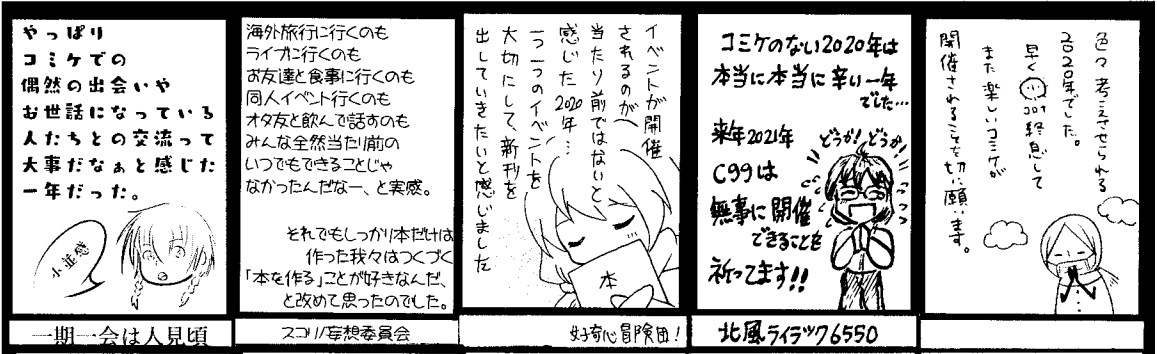 やっぱり
コミケでの
偶然の出会いや
お世話になっている
人たちとの交流って
大事だなぁと感じた
一年だった。
小並感
一期一会は人見頃
海外旅行に行くのも
ライブに行くのも
お友達と食事に行くのも
同人イベント行くのも
オタ友と飲んで話すのも
みんな全然当たり前の
いつでもできることじゃ
なかったんだなー、と実感。
それでもしっかり本だけは
作った我々はつくづく
「本を作る」ことが好きなんだ、
と改めて思ったのでした。
スコリノ妄想委員会
イベントが開催
されるのが
当たり前ではないと
感じた2020年…
一つ一つのイベントを
大切にして、新刊を
出していきたいと感じました
本
好奇心冒険団!
コミケのない2020年は
本当に本当に辛い一年
でした…
来年2021年
C99は
無事に開催
できることを
祈ってます!!
どうか!どうか
北風ライラック6550
色々考えさせられる
2020年でした。
早くコロナ終息して
また楽しいコミケが
開催されることを切に願います。